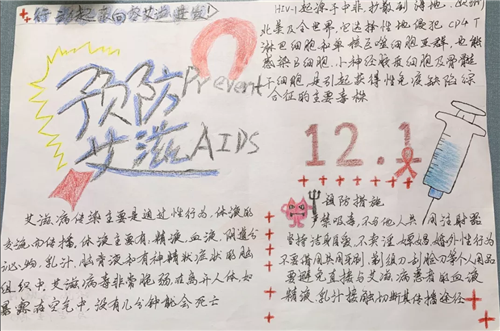 行动起来向零艾滋进发!
预防
艾滋
Prevent
AIDS
HIV-1起源于中非,扩散到海地,欧洲
北美及全世界,它选择性地侵犯CD4T
淋巴细胞和单核巨噬细胞亚群,也能
感染B细胞,小神经胶质细胞及骨髓
干细胞,是引起获得性免疫缺陷综
合征的主要毒株
12.1
艾滋病传染主要是通过性行为,体液的
交流而传播,体液主要有:精液,血液,阴道分
泌物,乳汁,脑脊液和有神经症状的脑
组织中,艾滋病毒非常脆弱,在离开人体,如
暴露在空气中,没有几分钟就会死亡
预防措施
严禁吸毒,不与他人共用注射器
坚持洁身自爱,不卖淫嫖娼,婚外性行为
不要借用共用牙刷,剃须刀,刮脸刀等个人用品
要避免直接与艾滋病患者的血液
精液,乳汁接触,切断其传播途径